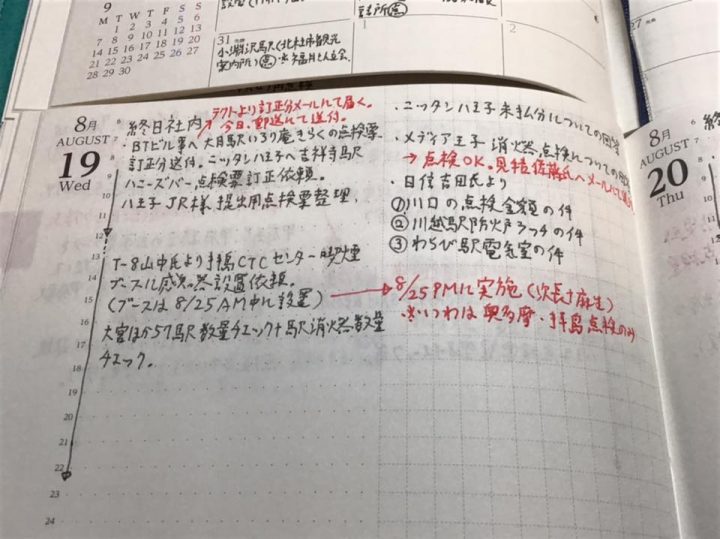 9
M T W T F S S
1 2 3 4 5 6
7 8 9 10 11 12 13
14 15 16 17 18 19 20
21 22 23 24 25 26 27
28 29 30
31
小淵沢馬尺(北杜市観光
案内所)
1
2
27
8月
AUGUST
19
Wed
終日社内
テクトより訂正分メールにて届く。
今日、郵送にて送付。
・BTビル事へ大月馬尺いろり庵きらくの点検票
訂正分送付。ニッタン八王子へ吉祥寺馬尺
ハニーズバー点検票訂正依頼。
八王子JR様、提出用点検票整理。
T-8山中氏より拝島CTCセンター喫煙
ブースル感知器設置依頼。
(ブースは8/25AM中に設置)
→8/25PMに実施(次長+麻生)
※いわは奥多摩・拝島点検のみ
大宮ほか57馬尺数量チェック+馬尺消火器数量
チェック。
・ニッタン八王子未払分についての回答
・メディア王子消火器点検についての回答
→点検OK。見積佐藤氏へメールにて送付
・日信吉田氏より
①川口の点検金額の件
②川越馬尺防火戸3っ4の件
③わらび馬尺電気室の件
6
7
8
9
10
11
12
13
14
15
16
17
18
19
20
21
22
23
24
8月
AUGUST
20
Thu